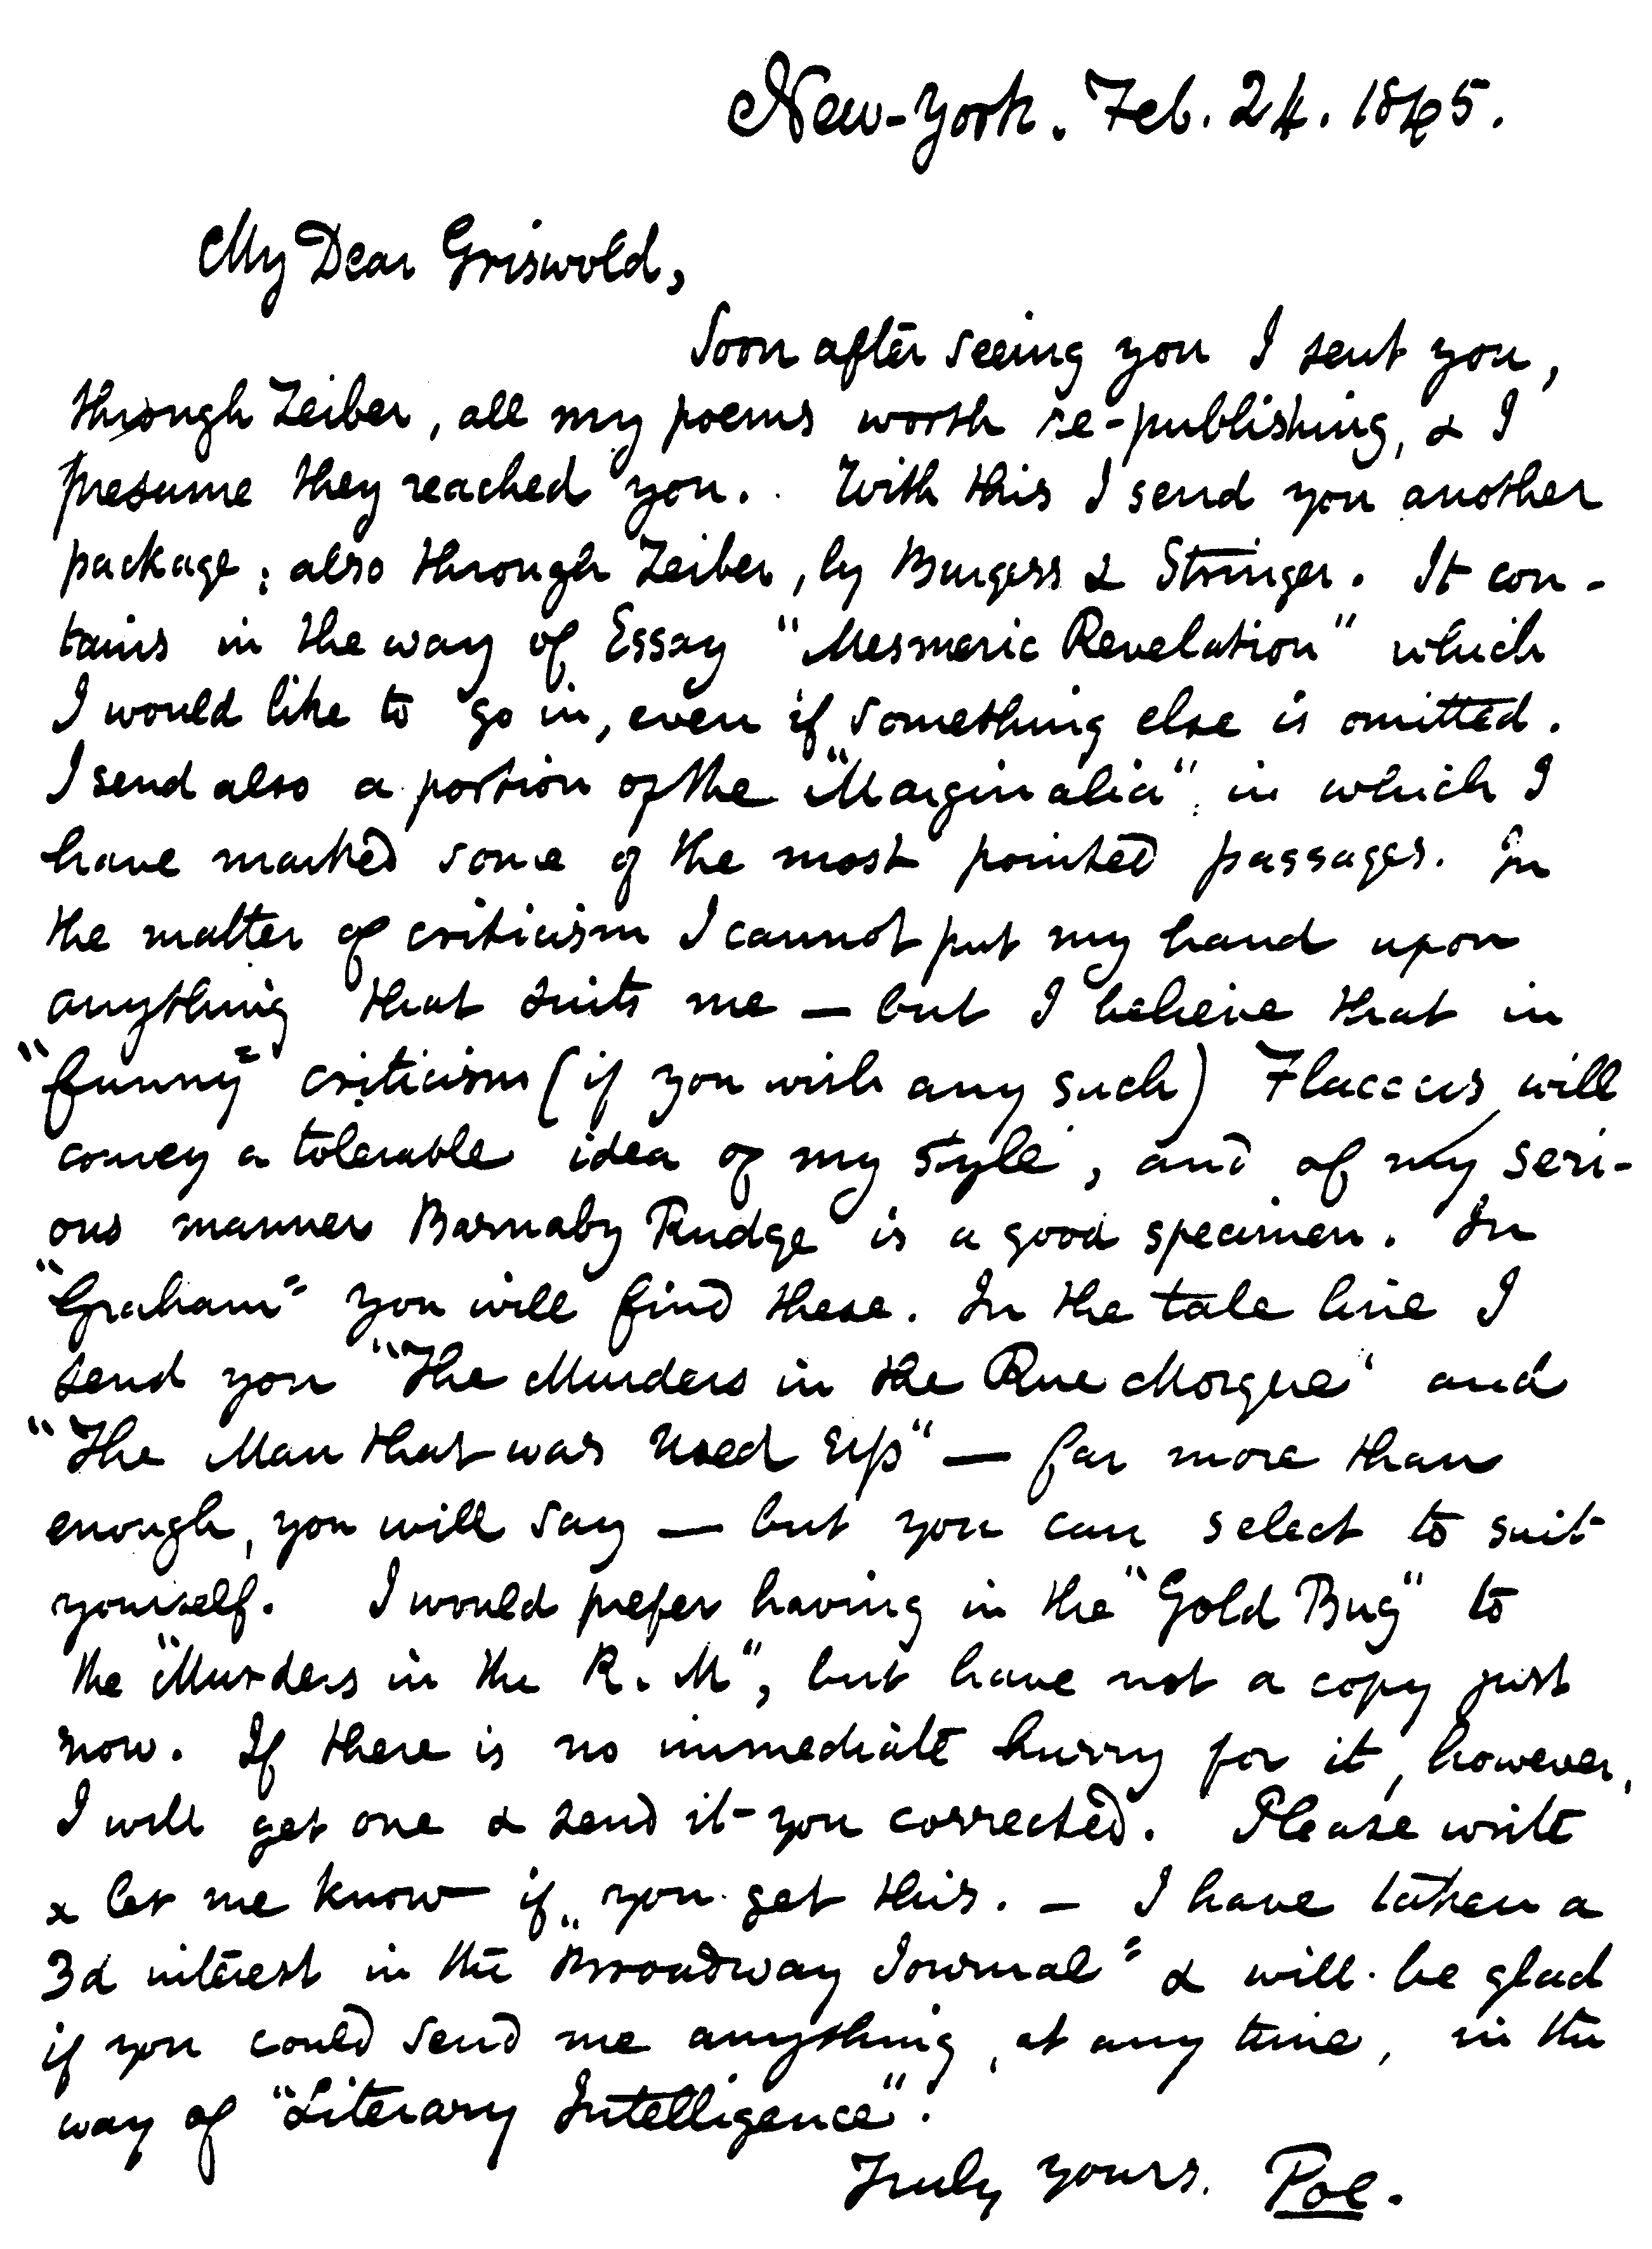 New-York. Feb. 24. 1845.
My Dear Griswold,
Soon after seeing you I sent you,
through Zeiber, all my poems worth re-publishing, & I
presume they reached you. With this I send you another
package; also through Zeiber, by Burgess & Stringer. It con-
tains in the way of Essay "Mesmeric Revelation" which
I would like to go in, even if something else is omitted.
I send also a portion of the "Marginalia", in which I
have marked some of the most pointed passages. In
the matter of criticism I cannot put my hand upon
anything that suits me — but I believe that in
"funny" criticism (if you wish any such) Flaccus will
convey a tolerable idea of my style, and of my seri-
ous manner Barnaby Rudge is a good specimen. In
"Graham" you will find these. In the tale line I
send you "The Murders in the Rue Morgue" and
"The Man that was used up" — far more than
enough, you will say — but you can select to suit
yourself. I would prefer having in the "Gold Bug" to
the "Murders in the R. M", but have not a copy just
now. If there is no immediate hurry for it, however,
I will get one & send it you corrected. Please write
& let me know if you get this. — I have taken a
3d interest in the "Broadway Journal" & will be glad
if you could send me anything, at any time, in the
way of "Literary Intelligence".
Truly yours. Poe.